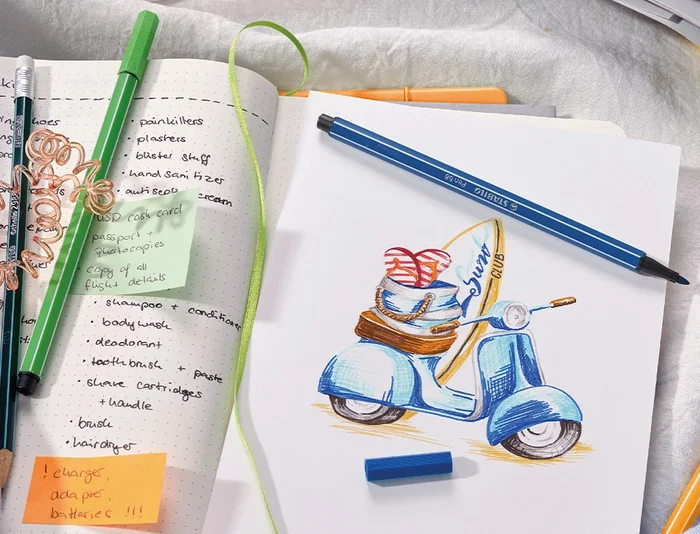 • painkillers
• plasters
• blister stuff
• hand sanitizer
• antiseptic cream
USD cash card
passport +
photocopies
copy of all
flight details
• shampoo + conditioner
• bodywash
• deodorant
• toothbrush + paste
• shave cartridges
+ handle
• brush
• hairdryer
! charger,
adapter,
batteries !!!
STABILO Pen 68
Surf
CLUB